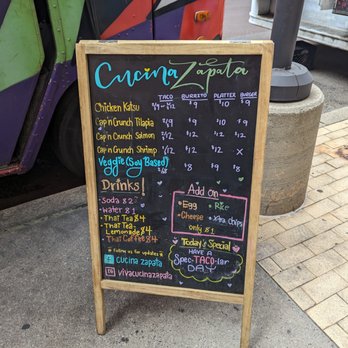 Cucina Zapata
TACO BURRITO PLATTER BURGER
Chicken Katsu $9 $10 $9
Cap'n Crunch Tilapia $9 $10 $9
Cap'n Crunch Salmon $12 $12 $12
Cap'n Crunch Shrimp $12 $12 X
Veggie (Soy Based) $8 $9 $8
Drinks!
Soda $2
Water $1
Thai Tea $4
Thai Tea
Lemonade $4
Thai Coffee $4
Follow us for updates
cucina zapata
vivacucinazapata
Add on
Egg Rice
Cheese xtra chips
only $1
Today's Special
HAVE A
Spec-TACO-lar
DAY